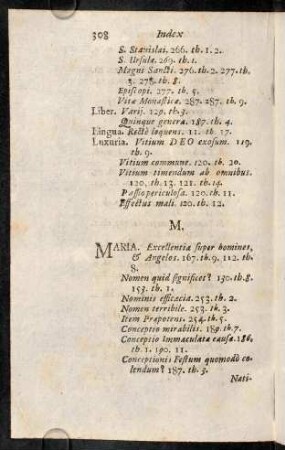 308 Index
S. Stanislai. 266. th. 1. 2.
S. Ursulæ. 269. th. 1.
Magni Sancti. 276. th. 2. 277. th.
3. 278. th. 8.
Episcopi. 277. th. 5.
Vitæ Monasticæ. 287. 287. th. 9.
Liber. Varij. 129. th. 3.
Quinque genera. 187. th. 4.
Lingua. Rectè loquens. 11. th. 17.
Luxuria. Vitium DEO exosum. 119.
th. 9.
Vitium commune. 120. th. 20.
Vitium timendum ab omnibus.
120. th. 13. 121. th. 14.
Passio periculosa. 120. th. 11.
Effectus mali. 120. th. 12.
M.
MARIA. Excellentia super homines,
& Angelos. 167. th. 9. 112. th.
8.
Nomen quid significet? 130. th. 8.
153. th. 1.
Nominis efficacia. 253. th. 2.
Nomen terribile. 253. th. 3.
Item Præpotens. 254. th. 5.
Conceptio mirabilis. 189. th. 7.
Conceptio Immaculatæ causæ. 186.
th. 1. 190. 11.
Conceptionis Festum quomodò co-
lendum? 187. th. 3.
Nati-